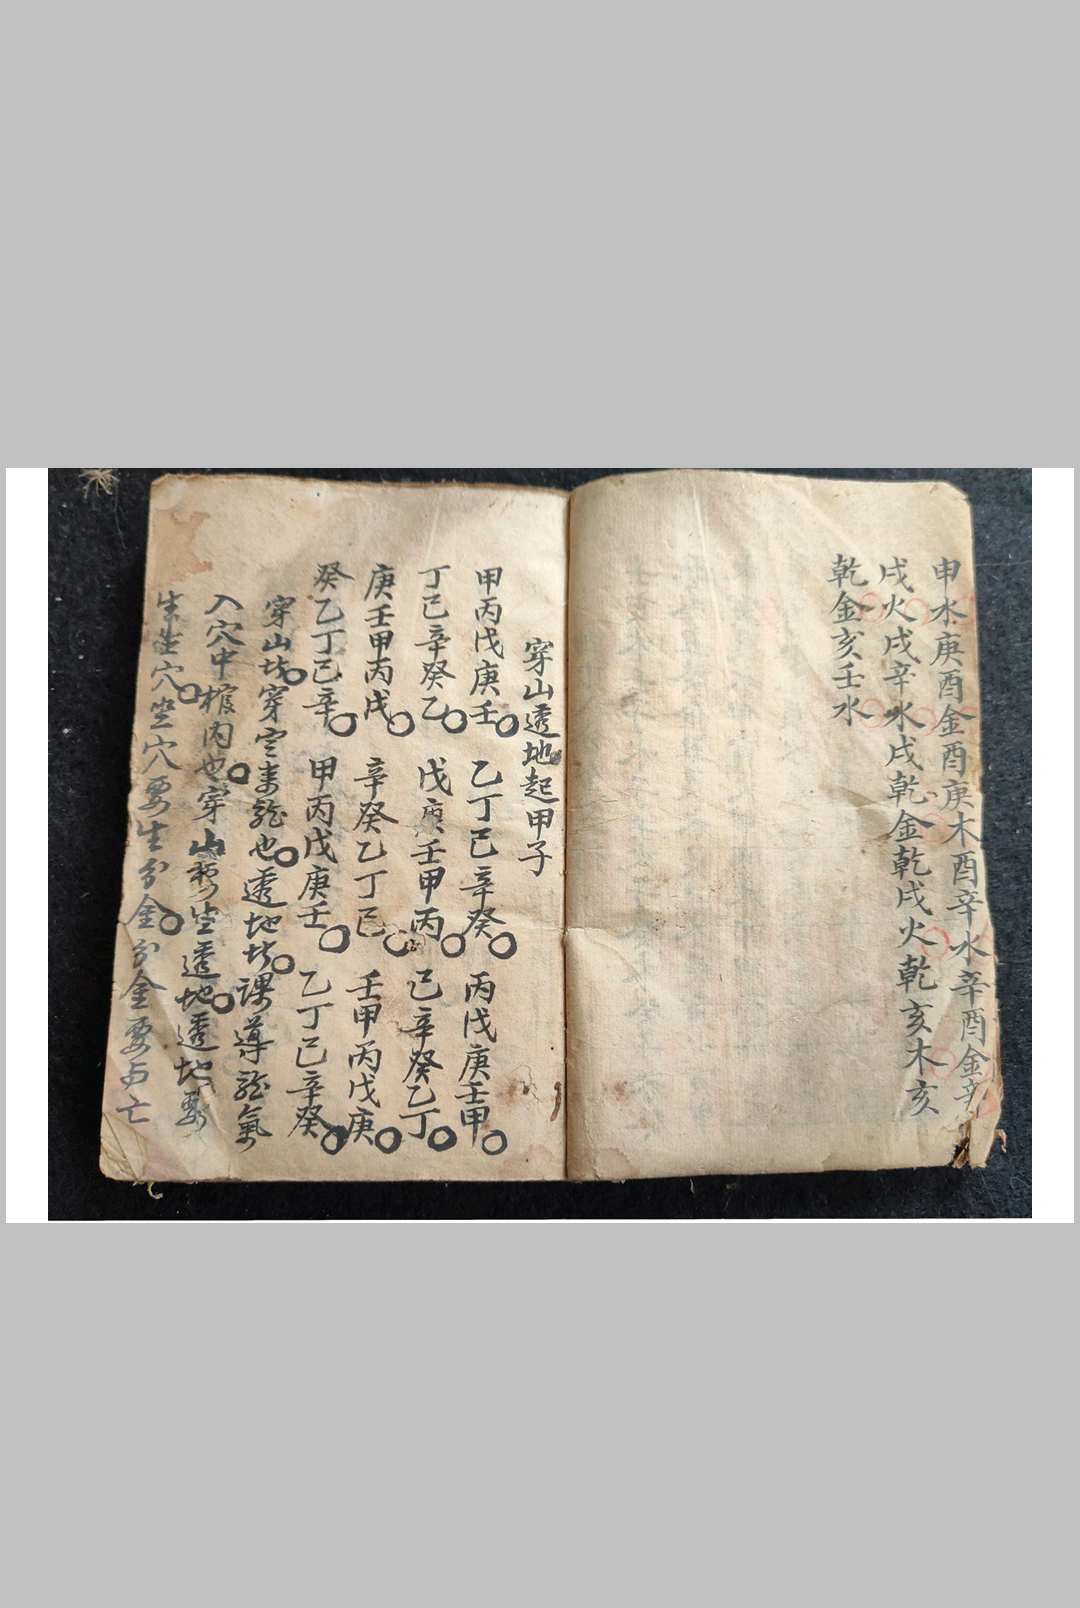 申水庚酉金酉庚木酉辛水辛酉金辛
戌火戌辛水戌乾金乾戌火乾亥木亥
乾金亥壬水
穿山透地起甲子
甲丙戊庚壬○乙丁己辛癸○丙戊庚壬甲○
丁己辛癸乙○戊庚壬甲丙○己辛癸乙丁○
庚壬甲丙戊○辛癸乙丁己○壬甲丙戊庚○
癸乙丁己辛○甲丙戊庚壬○乙丁己辛癸○
穿山 ○穿定來龍也○透地 ○課導龍氣
入穴中棺內也○穿山要生透地○透地要
生坐穴○坐穴要生分金○分金要与亡